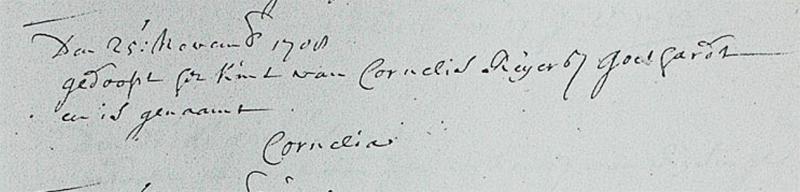 Den 25: Novemb 1708
gedoopt het kint van Cornelis Reijersz Goethardt
en is genaamt
Cornelia